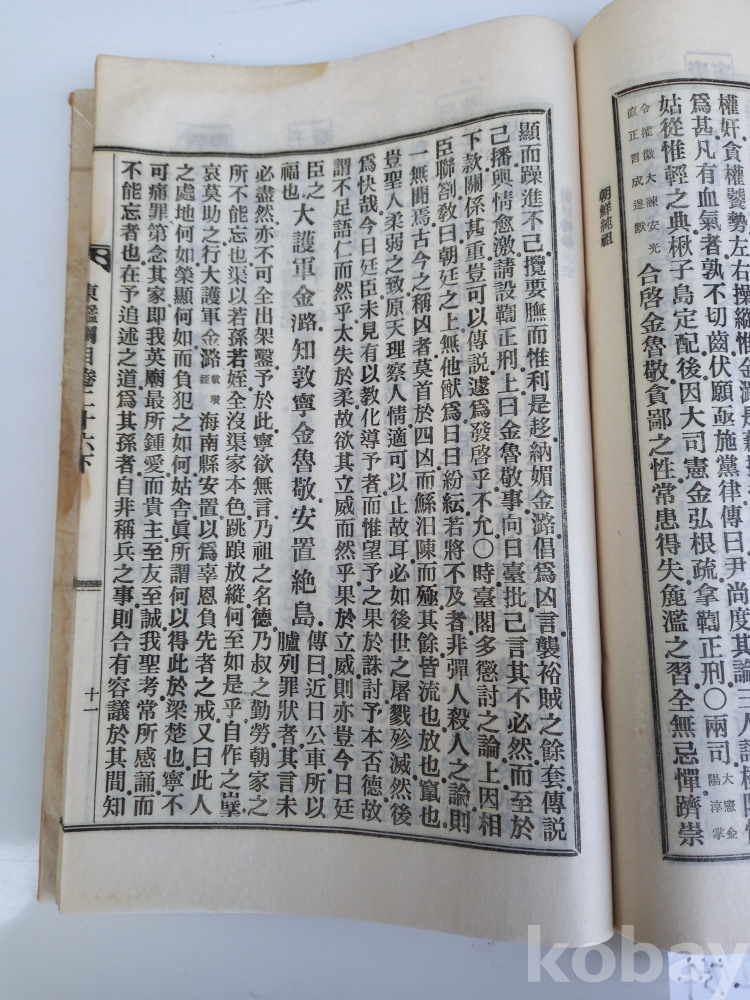 權奸貪權饕勢左右操縱惟金潞是
爲甚凡有血氣者孰不切齒伏願亟施黨律傳曰尹尙度其論三人請極
姑從惟輕之典楸子島定配後因大司憲金弘根疏拿鞫正刑〇兩司大憲金陽淳掌
令權徽大諫安光直正言成遂默 合啓金魯敬貪鄙之性常患得失麁濫之習全無忌憚躋崇
朝鮮純祖
顯而躁進不己攬要膴而惟利是趍納媚金潞倡爲凶言襲裕賊之餘套傳說
己播輿情愈激請設鞫正刑上曰金魯敬事向日臺批己言其不必然而至於
下款關係甚重豈可以傳說遽爲發啓乎不允〇時臺閣多懲討之論上因相
臣聯劄敎曰朝廷之上無他猷爲日日紛紜若將不及者非彈人殺人之論則
一無聞焉古今之稱凶者莫首於四凶而鯀汨陳而殛其餘皆流也放也竄也
豈聖人柔弱之致原天理察人情適可以止故耳必如後世之屠戮殄滅然後
爲快哉今日廷臣未見有以敎化導予者而惟望予之果於誅討予本否德故
謂不足語仁而然乎太失於柔故欲其立威而然乎果於立威則亦豈今日廷
臣之福也 大護軍金潞知敦寧金魯敬安置絶島 傳曰近日公車所以臚列罪狀者其言未
必盡然亦不可全出架鑿予於此寧欲無言乃祖之名德乃叔之勤勞朝家之
所不能忘也渠以若孫若姪全沒渠家本色跳踉放縱何至如是乎自作之孼
哀莫助之行大護軍金潞載瓚姪海南縣安置以爲辜恩負先者之戒又曰此人
之處地何如榮顯何如而負犯之如何姑舍眞所謂何以得此於梁楚也寧不
可痛罪第念其家即我英廟最所鍾愛而貴主至友至誠我聖考常所感誦而
不能忘者也在予追述之道爲其孫者自非稱兵之事則合有容議於其間知
東鑑綱目卷二十六下
十一
kobay